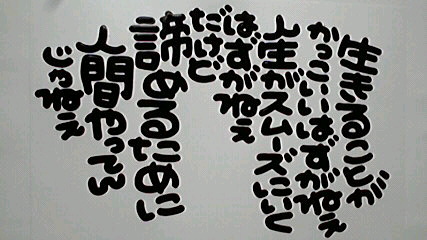 生きることが
かっこいいはずがねぇ
人生がスムーズにいく
はずがねぇ
だけど
諦めるために
人間やってん
じゃねぇ